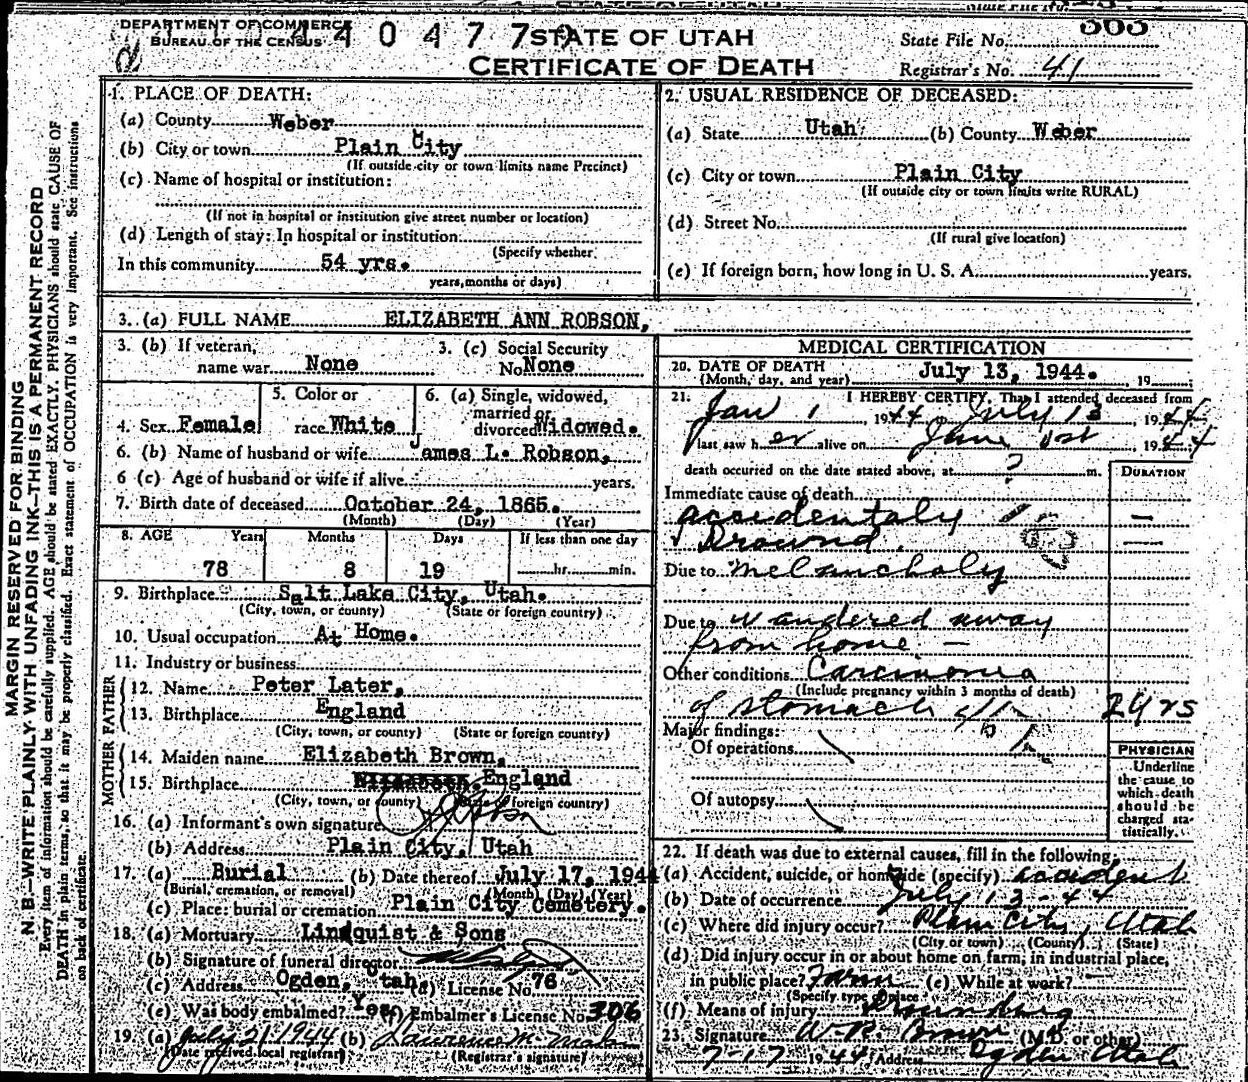 DEPARTMENT OF COMMERCE
BUREAU OF THE CENSUS
4 0 4 7 7
STATE OF UTAH
CERTIFICATE OF DEATH
State File No.
Registrar's No. 41
MARGIN RESERVED FOR BINDING
N. B.—WRITE PLAINLY WITH UNFADING INK—THIS IS A PERMANENT RECORD
Every item of information should be carefully supplied. AGE should be stated EXACTLY. PHYSICIANS should state CAUSE OF
DEATH in plain terms, so that it may be properly classified. Exact statement of OCCUPATION is very important. See instructions
on back of certificate.
1. PLACE OF DEATH:
(a) County Weber
(b) City or town Plain City
(If outside city or town limits name Precinct)
(c) Name of hospital or institution:
(If not in hospital or institution give street number or location)
(d) Length of stay: In hospital or institution
(Specify whether
In this community 54 yrs.
years, months or days)
2. USUAL RESIDENCE OF DECEASED:
(a) State Utah (b) County Weber
(c) City or town Plain City
(If outside city or town limits write RURAL)
(d) Street No.
(If rural give location)
(e) If foreign born, how long in U. S. A. years.
3. (a) FULL NAME ELIZABETH ANN ROBSON,
3. (b) If veteran,
name war None
3. (c) Social Security
No None
4. Sex Female
5. Color or
race White
6. (a) Single, widowed,
married or
divorced Widowed.
6. (b) Name of husband or wife James L. Robson,
6 (c) Age of husband or wife if alive years.
7. Birth date of deceased October 24, 1865.
(Month) (Day) (Year)
8. AGE Years Months Days If less than one day
78 8 19 hr. min.
9. Birthplace Salt Lake City, Utah.
(City, town, or county) (State or foreign country)
10. Usual occupation At Home.
11. Industry or business
FATHER
12. Name Peter Later,
13. Birthplace England
(City, town, or county) (State or foreign country)
MOTHER
14. Maiden name Elizabeth Brown,
15. Birthplace England
(City, town, or county) (State or foreign country)
16. (a) Informant's own signature
(b) Address Plain City, Utah
17. (a) Burial (b) Date thereof July 17, 1944
(Burial, cremation, or removal) (Month) (Day) (Year)
(c) Place: burial or cremation Plain City Cemetery.
18. (a) Mortuary Lindquist & Sons
(b) Signature of funeral director
(c) Address Ogden, Utah, (d) License No 76
(e) Was body embalmed? Yes (f) Embalmer's License No 306
19. (a) July 21 1944 (b)
(Date received local registrar) (Registrar's signature)
MEDICAL CERTIFICATION
20. DATE OF DEATH July 13, 1944. , 19
(Month, day, and year)
21. I HEREBY CERTIFY, That I attended deceased from
Jan 1 , 1944 July 13 , 1944
last saw her alive on June 1st , 1944
death occurred on the date stated above, at ? m.
DURATION
Immediate cause of death
accidentaly —
Drownd. —
Due to Melancholy
Due to wandered away
from home —
Other conditions Carcinoma
(Include pregnancy within 3 months of death)
of stomach 2 yrs
Major findings:
Of operations
Of autopsy
PHYSICIAN
Underline
the cause to
which death
should be
charged sta-
tistically.
22. If death was due to external causes, fill in the following
(a) Accident, suicide, or homicide (specify) accident
(b) Date of occurrence July 13 - 44
(c) Where did injury occur? Plain City, Utah
(City or town) (County) (State)
(d) Did injury occur in or about home on farm, in industrial place,
in public place? Farm (e) While at work? —
(Specify type of place)
(f) Means of injury Drowning
23. Signature W. R. Brown (M.D. or other)
7-17 1944 Address Ogden Utah